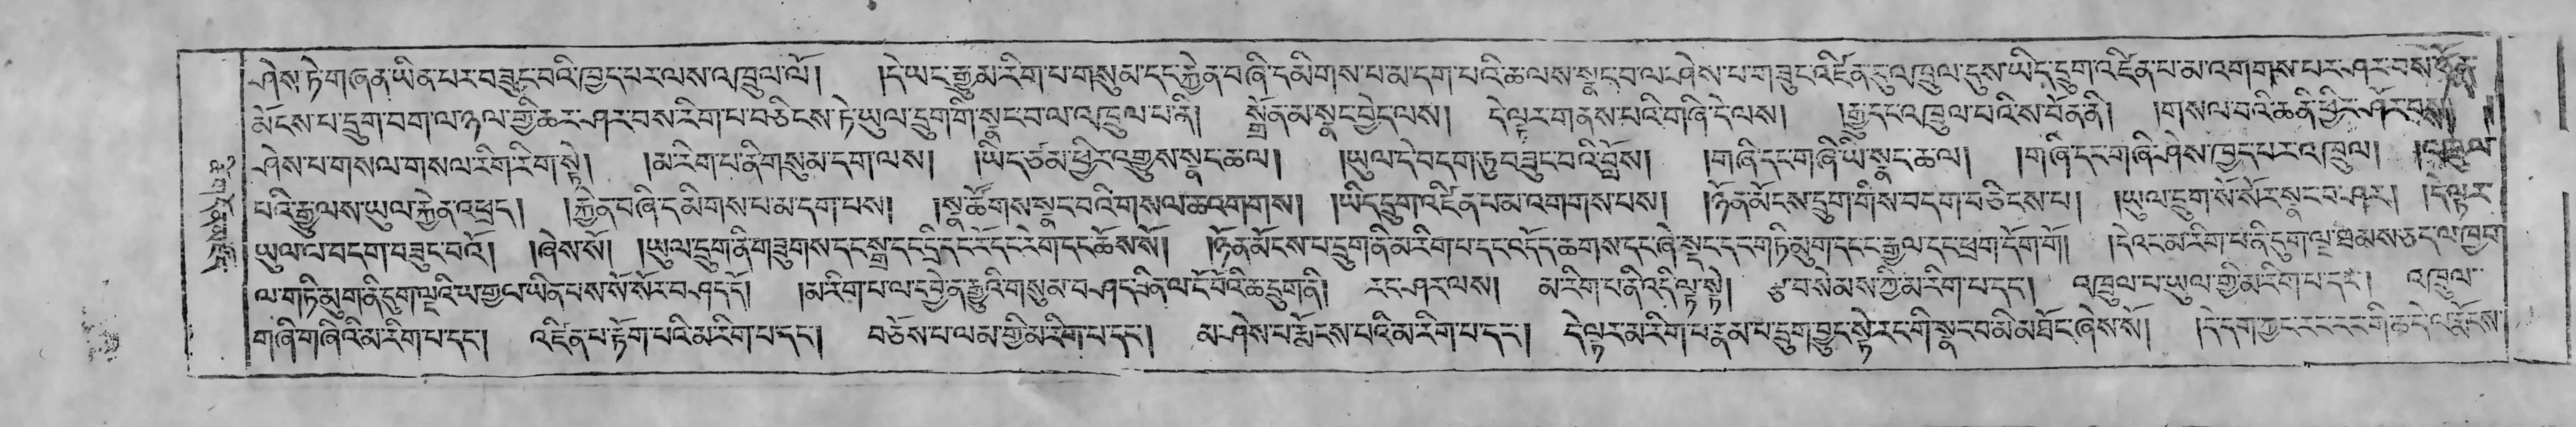 ཤེས་ཏེ་གཞན་ཡིན་པར་བཟུང་བའི་ཁྱད་པར་ལས་འཁྲུལ་ལོ། །དེ་ཡང་རྒྱུ་མ་རིག་པ་གསུམ་དང་རྐྱེན་བཞི་དམིགས་པ་མ་དག་པའི་ཆ་ལས་སྣང་བ་ལ་ཤེས་པ་གཟུང་འཛིན་དུ་འཁྲུལ་དུས་ཡིད་དྲུག་འཛིན་པ་མ་འགགས་པར་ཤར་བས་ཉོན་
མོངས་པ་དྲུག་བག་ལ་ཉལ་གྱི་ཆར་ཤར་བས་རིག་པ་བཅིངས་ཏེ་ཡུལ་དྲུག་གི་སྣང་བ་ལ་འཁྲུལ་པ་ནི། སྒྲོན་མ་སྣང་བྱེད་ལས། དེ་ལྟར་གནས་པའི་གཞི་དེ་ལས། །རྒྱུ་དང་འཁྲུལ་པའི་ས་བོན་ནི། །གསལ་བའི་ཆ་ནི་ཕྱིར་ཤོར་བས།
ཤེས་པ་གསལ་གསལ་རིག་རིག་སྟེ། །མ་རིག་པ་ནི་གསུམ་དག་ལས། །ཡིད་ཙམ་ཕྱིར་འགྱུས་སྣང་ཆ་ལ། །ཡུལ་དེ་བདག་ཏུ་བཟུང་བའི་བློས། །གཞི་དང་གཞི་ཡི་སྣང་ཆ་ལ། །གཞི་དང་གཞི་ཤེས་ཁྱད་པར་འཁྲུལ། །འཁྲུལ་
པའི་རྒྱུ་ལས་ཡུལ་རྐྱེན་འཕྲད། །རྐྱེན་བཞི་དམིགས་པ་མ་དག་པས། །སྣ་ཚོགས་སྣང་བའི་གསལ་ཆ་འགགས། །ཡིད་དྲུག་འཛིན་པ་མ་འགགས་པས། །ཉོན་མོངས་དྲུག་གིས་བདག་བཅིངས་པ། །ཡུལ་དྲུག་སོ་སོར་སྣང་བ་ཤར། །དེ་ལྟར་
ཡུལ་ལ་བདག་བཟུང་བའོ། །ཞེས་སོ། །ཡུལ་དྲུག་ནི་གཟུགས་དང་སྒྲ་དང་དྲི་དང་རོ་དང་རེག་དང་ཆོས་སོ། །ཉོན་མོངས་པ་དྲུག་ནི་མ་རིག་པ་དང་འདོད་ཆགས་དང་ཞེ་སྡང་དང་གཏི་མུག་དང་ང་རྒྱལ་དང་ཕྲག་དོག་གོ། །དེ་འང་མ་རིག་པ་ནི་དུག་ལྔ་ཐམས་ཅད་ལ་ཁྱབ་
ལ་གཏི་མུག་ནི་དུག་ལྔའི་ཡ་གྱལ་ཡིན་པས་སོ་སོར་བཤད་དོ། །མ་རིག་པ་ལ་དབྱེ་ན་རྒྱུའི་གསུམ་བཤད་ཟིན་ལ་ངོ་བོའི་ཆ་དྲུག་ནི། རང་ཤར་ལས། མ་རིག་པ་ནི་འདི་ལྟ་སྟེ། རྩ་བ་སེམས་ཀྱི་མ་རིག་པ་དང་། འཁྲུལ་པ་ཡུལ་གྱི་མ་རིག་པ་དང་། འཁྲུལ་
གཞི་གཞིའི་མ་རིག་པ་དང་། འཛིན་པ་རྟོག་པའི་མ་རིག་པ་དང་། བཅོས་པ་ལམ་གྱི་མ་རིག་པ་དང་། མ་ཤེས་པ་རྨོངས་པའི་མ་རིག་པ་དང་། དེ་ལྟར་མ་རིག་པ་རྣམ་པ་དྲུག་བྱུང་སྟེ་རང་གི་སྣང་བ་མི་མཐོང་ཞེས་སོ། །དེ་དག་ཀྱང་རང་རང་གི་ཆ་དེ་ལ་རྨོངས་